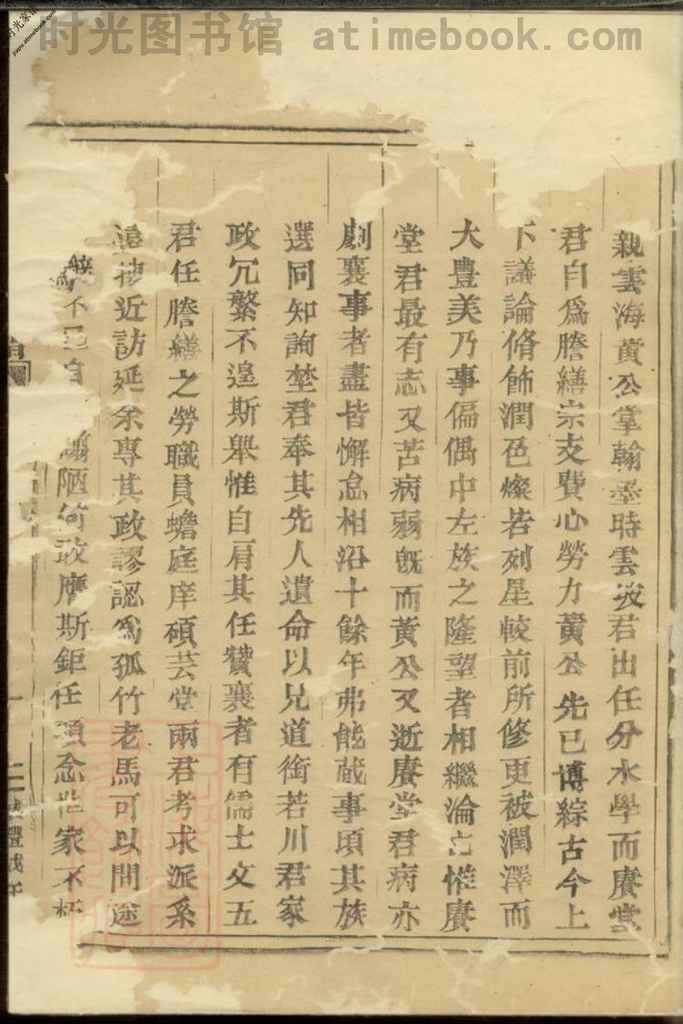 时光图书馆 atimebook.com
親雲海黃公掌翰墨時雲波君出任分水學而賡堂
君自爲謄繕宗支費心勞力黃公先已博綜古今上
下議論脩飾潤色燦若列星較前所修更被潤澤而
大豊美乃事偏偶中左族之隆望者相繼淪亡惟賡
堂君最有志又苦病弱旣而黃公又逝賡堂君病亦
劇襄事者盡皆懈怠相沿十餘年弗能蕆事頃其族
選同知詢埜君奉其先人遺命以兄道銜若川君家
政冗繁不遑斯舉惟自肩其任贊襄者有儒士文五
君任謄繕之勞職員蟾庭庠碩芸堂兩君考求派系
遠搜近訪延余專其政謬認爲孤竹老馬可以問途
不 自 陋何敢膺斯鉅任須念世家不朽
豐戊午